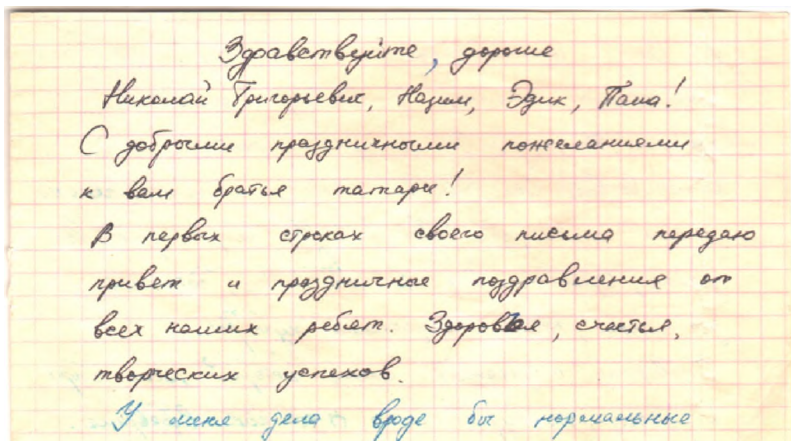 Здравствуйте, дорогие
Николай Григорьевич, Назим, Эдик, Паша!
С добрыми праздничными пожеланиями
к вам братья татары!
В первых строках своего письма передаю
привет и праздничные поздравления от
всех наших ребят. Здоровья, счастья,
творческих успехов.
У меня дела вроде бы нормальные